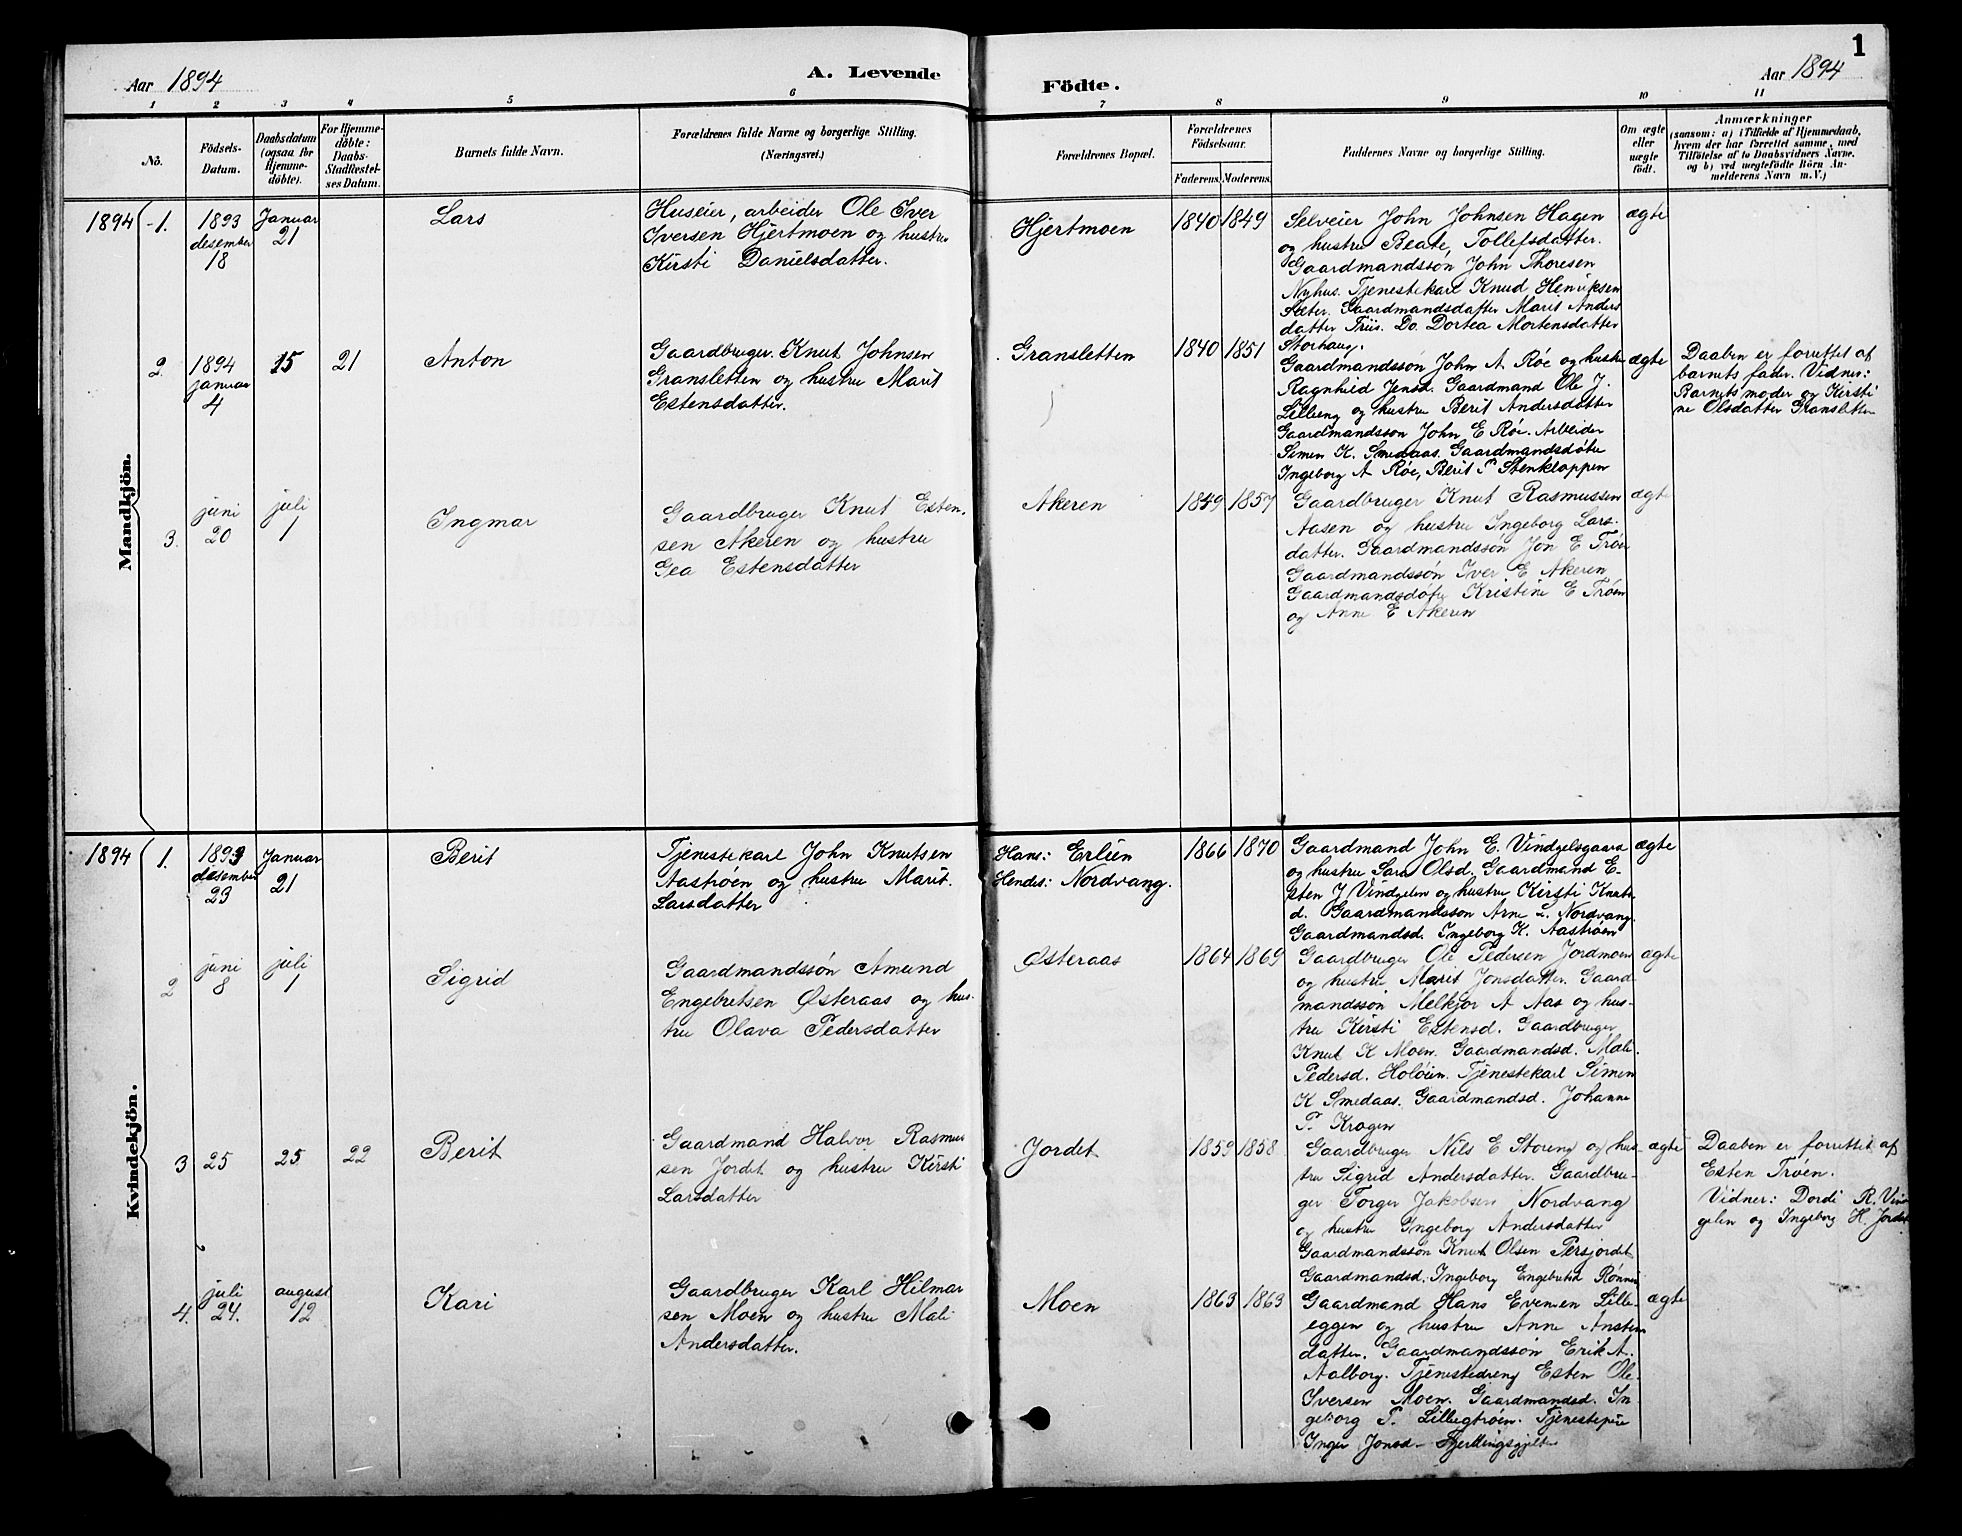 1
Aar 1894
A. Levende
Födte.
Aar 1894
1 2 3 4 5 6 7 8 9 10 11
No.
Födsels-
Datum.
Daabsdatum
(ogsaa for
Hjemme-
döbte).
For Hjemme-
döbte:
Daabs-
Stadfæstel-
ses Datum.
Barnets fulde Navn.
Forældrenes fulde Navne og borgerlige Stilling.
(Næringsvei.)
Forældrenes Bopæl.
Forældrenes
Födselsaar.
Faderens. Moderens.
Faddernes Navne og borgerlige Stilling.
Om ægte
eller
uægte
födt.
Anmærkninger
(saasom: a) i Tilfælde af Hjemmedaab,
hvem der har forrettet samme, med
Tilföielse af to Daabsvidners Navne,
og b) ved uægtefödte Börn An-
melderens Navn m.V.)
Mandkjön.
1894 1.
1893
desember
18
Januar
21
Lars
Huseier, arbeider Ole Iver
Iversen Hjertmoen og hustru
Kirsti Danielsdatter.
Hjertmoen
1840 1849
Selveier John Johnsen Hagen
og hustru Beate Tollefsdatter.
Gaardmandssøn John Thoresen
Nyhus. Tjenestekarl Knud Henriksen
Sæter. Gaardmandsdatter Marit Anders
datter Triis. Do. Dortea Mortensdatter
Storhaug.
ægte
2.
1894
januar
4
15
21
Anton
Gaardbruger Knut Johnsen
Gransletten og hustru Marit
Estensdatter.
Gransletten
1840 1851
Gaardmandssøn John A. Røe og hustru
Ragnhild Jensd. Gaardmand Ole J.
Lilleeng og hustru Berit Andersdatter
Gaardmandssøn John E Røe. Arbeider
Simen K. Smedaas. Gaardmandsdøtre
Ingeborg A Røe, Berit P Stenkloppen
ægte
Daaben er forrettet af
barnets fader. Vidner:
Barnets moder og Kirsti
ne Olsdatter Gransletten
3.
juni
20
juli
1
Ingmar
Gaardbruger Knut Esten-
sen Akeren og hustru
Gea Estensdatter
Akeren
1849 1857
Gaardbruger Knut Rasmussen
Aasen og hustru Ingeborg Lars-
datter. Gaardmandssøn Jon E Trøen
Gaardmandssøn Iver E Akeren
Gaardmandsdøtre Kristine E Trøen
og Anne E Akeren
ægte
Kvindekjön.
1894 1.
1893
desember
23
Januar
21
Berit
Tjenestekarl John Knutsen
Aastrøen og hustru Marit
Larsdatter
Hans: Erlien
Hendes: Nordvang.
1866 1870
Gaardmand John E. Vindgelsgaard
og hustru Sara Olsd. Gaardmand E-
sten J Vindgelen og hustru Kirsti Knuts
d. Gaardmandssøn Arne L. Nordvang.
Gaardmandsd. Ingeborg K. Aastrøen
ægte
2
juni
8
juli
1
Sigrid
Gaardmandssøn Amund
Engebretsen Østeraas og hus-
tru Olava Pedersdatter
Østeraas
1864 1869
Gaardbruger Ole Pedersen Jordmoen
og hustru Marit Jonsdatter. Gaard-
mandssøn Melkjor A Aas og hus-
tru Kirsti Estensd. Gaardbruger
Knut K Moen. Gaardmandsd. Mali
Pedersd. Holøien. Tjenestekarl Simen
K Smedaas. Gaardmandsd. Johanne
P. Krogen
ægte
3
25
25
22
Berit
Gaardmand Halvor Rasmus
sen Jordet og hustru Kirsti
Larsdatter
Jordet
1859 1858
Gaardbruger Nils E Storeng og hus-
tru Sigrid Andersdatter. Gaardbru-
ger Torger Jakobsen Nordvang
og hustru Ingeborg Andersdatter
Gaardmandssøn Knut Olsen Persjordet
Gaardmandsd. Ingeborg Engebretsd Rønnin
ægte
Daaben er forrettet af
Esten Trøen.
Vidner: Dordi R. Vin
gelen og Ingeborg H. Jordet
4.
juli
24.
august
12
Kari
Gaardbruger Karl Hilmar
sen Moen og hustru Mali
Andersdatter.
Moen
1863 1863
Gaardmand Hans Evensen Lille-
eggen og hustru Anne Ansten
datter. Gaardmandssøn Erik A.
Aalborg. Tjenestedreng Esten Ole
Iversen Moen. Gaardmandsd. In
geborg P. Lillegtrøen. Tjenestepige
Inger Jonsd. Fjerdingsgjelten
ægte